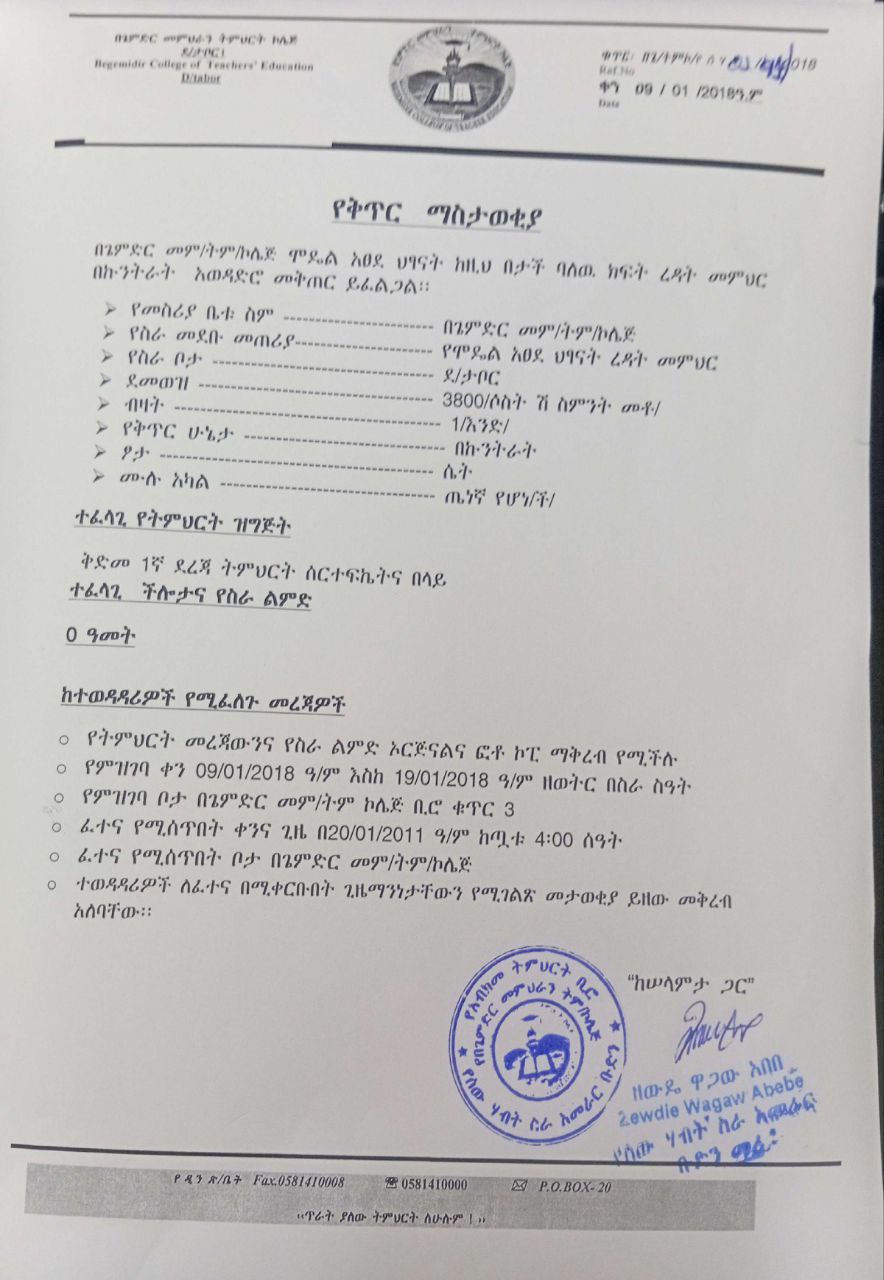 በጌምድር መምህራን ትምህርት ኮሌጅ
ደ/ታቦር
Begemidir College of Teachers' Education
D/tabor
Ref.No
ቀን 09 / 01 /2018ዓ.ም
Date
የቅጥር ማስታወቂያ
በጌምድር መም/ትም/ኮሌጅ ሞዴል አፀደ ህፃናት ከዚህ በታች ባለዉ ክፍት ረዳት መምህር
በኩንትራት አወዳድሮ መቅጠር ይፈልጋል፡፡
➢ የመስሪያ ቤቱ ስም ------------------------ በጌምድር መም/ትም/ኮሌጅ
➢ የስራ መደቡ መጠሪያ---------------------- የሞዴል አፀደ ህፃናት ረዳት መምህር
➢ የስራ ቦታ ----------------------------------- ደ/ታቦር
➢ ደመወዝ ------------------------------------- 3800/ሶስት ሽ ስምንት መቶ/
➢ ብዛት ------------------------------------------ 1/አንድ/
➢ የቅጥር ሁኔታ -------------------------------- በኩንትራት
➢ ፆታ ------------------------------------------- ሴት
➢ ሙሉ አካል ---------------------------------- ጤነኛ የሆነ/ች/
ተፈላጊ የትምህርት ዝግጅት
ቅድመ 1ኛ ደረጃ ትምህርት ሰርተፍኬትና በላይ
ተፈላጊ ችሎታና የስራ ልምድ
0 ዓመት
ከተወዳዳሪዎች የሚፈለጉ መረጃዎች
○ የትምህርት መረጃውንና የስራ ልምድ ኦርጅናልና ፎቶ ኮፒ ማቅረብ የሚችሉ
○ የምዝገባ ቀን 09/01/2018 ዓ/ም እስከ 19/01/2018 ዓ/ም ዘወትር በስራ ስዓት
○ የምዝገባ ቦታ በጌምድር መም/ትም ኮሌጅ ቢሮ ቁጥር 3
○ ፈተና የሚሰጥበት ቀንና ጊዜ በ20/01/2011 ዓ/ም ከጧቱ 4፡00 ሰዓት
○ ፈተና የሚሰጥበት ቦታ በጌምድር መም/ትም/ኮሌጅ
○ ተወዳዳሪዎች ለፈተና በሚቀርቡበት ጊዜማንነታቸውን የሚገልጽ መታወቂያ ይዘው መቅረብ
አለባቸው፡፡
“ከሠላምታ ጋር”
ዘውዴ ዋጋው አበበ
Zewdie Wagaw Abebe
የሰው ሃብት ስራ አመራር
ቡድን
የዲን ጽ/ቤት Fax.0581410008 ☎0581410000 ✉ P.O.BOX- 20
‹‹ጥራት ያለው ትምህርት ለሁሉም ! ››